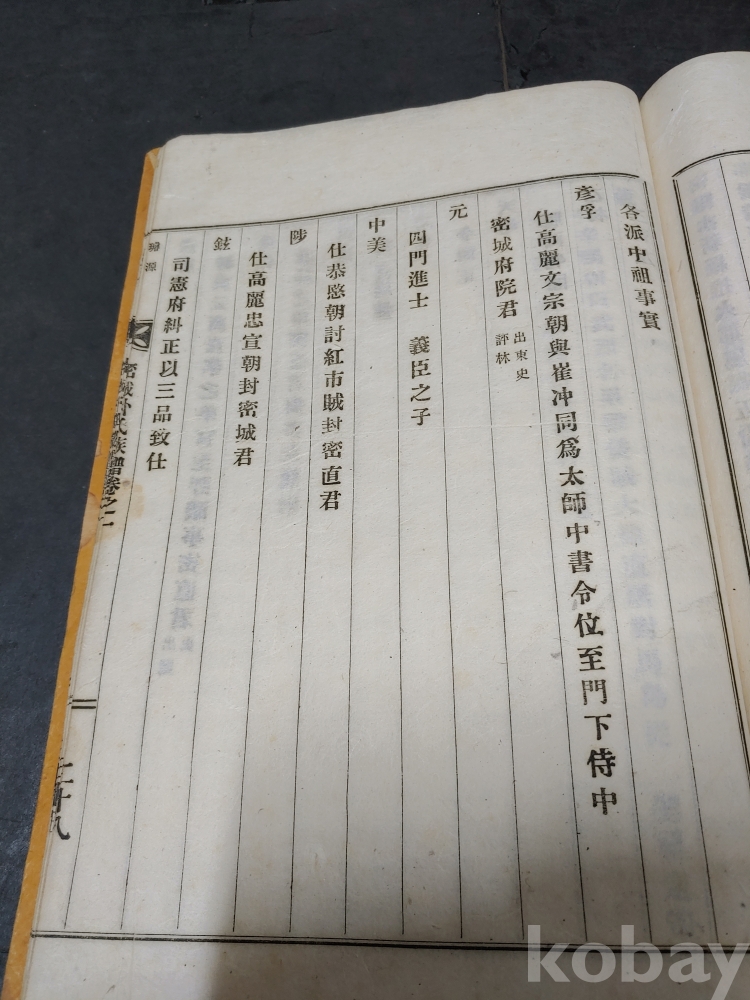 各派中祖事實
彦孚
仕高麗文宗朝與崔冲同爲太師中書令位至門下侍中
密城府院君 出東史
評林
元
四門進士 義臣之子
中美
仕恭愍朝討紅巿賊封密直君
陟
仕高麗忠宣朝封密城君
鉉
司憲府糾正以三品致仕
源
氏族譜卷之二
kobay